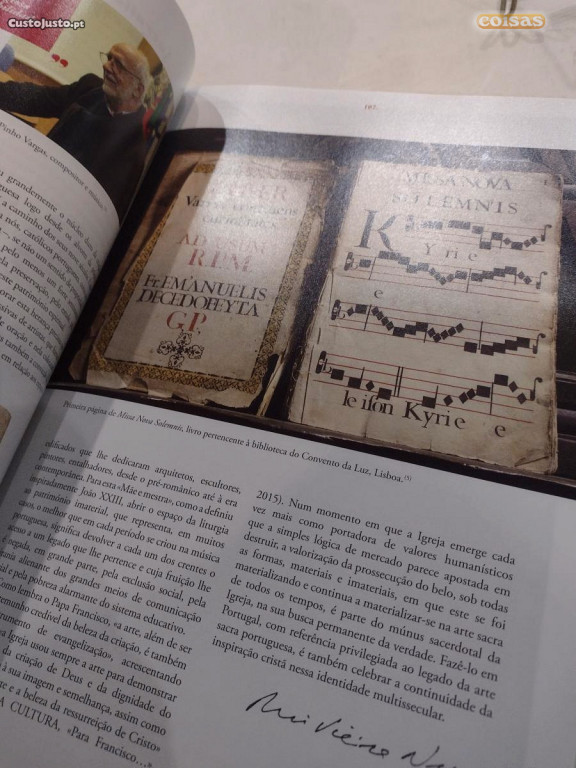 CustoJusto.pt
coisas
107
Pinho Vargas, compositor e músico.
grandemente o núcleo
guesa logo desde os
a caminho dos seus
nós, católicos
se não um sentido
pelo menos um
pela preservação, pelo
este património
esta herança
de animar, pela
de oração, e será
também a
em relação ao
VARIAS
AD USUM
R.P.M.
Fr. EMANUELIS
DECEDOFEYTA
G.P.
MISSA NOVA
SOLEMNIS
Kyrie
e
leison Kyrie e
Primeira página de Missa Nova Solemnis, livro pertencente à biblioteca do Convento da Luz, Lisboa.(5)
edificados que lhe dedicaram arquitetos, escultores,
pintores, entalhadores, desde o pré-românico até à era
contemporânea. Para esta «Mãe e mestra», como a definiu
inspiradamente João XXIII, abrir o espaço da liturgia
ao património imaterial, que representa, em muitos
caso, o melhor que em cada período se criou na música
portuguesa, significa devolver a cada um dos crentes o
acesso a um legado que lhe pertence e cuja fruição lhe
é negada, em grande parte, pela exclusão social, pela
alienante dos grandes meios de comunicação
e pela pobreza alarmante do sistema educativo.
Como lembra o Papa Francisco, «a arte, além de ser
testemunho credível da beleza da criação, é também
instrumento de evangelização», apresentando
a Igreja usou sempre a arte para demonstrar
da criação de Deus e da dignidade do
à sua imagem e semelhança, assim como
e a beleza da ressurreição de Cristo»
A CULTURA, «Para Francisco...”
2015). Num momento em que a Igreja emerge cada
vez mais como portadora de valores humanísticos
que a simples lógica de mercado parece apostada em
destruir, a valorização da prossecução do belo, sob todas
as formas, materiais e imateriais, em que este se foi
materializando e continua a materializar-se na arte sacra
de todos os tempos, é parte do múnus sacerdotal da
Igreja, na sua busca permanente da verdade. Fazê-lo em
Portugal, com referência privilegiada ao legado da arte
sacra portuguesa, é também celebrar a continuidade da
inspiração cristã nessa identidade multissecular.